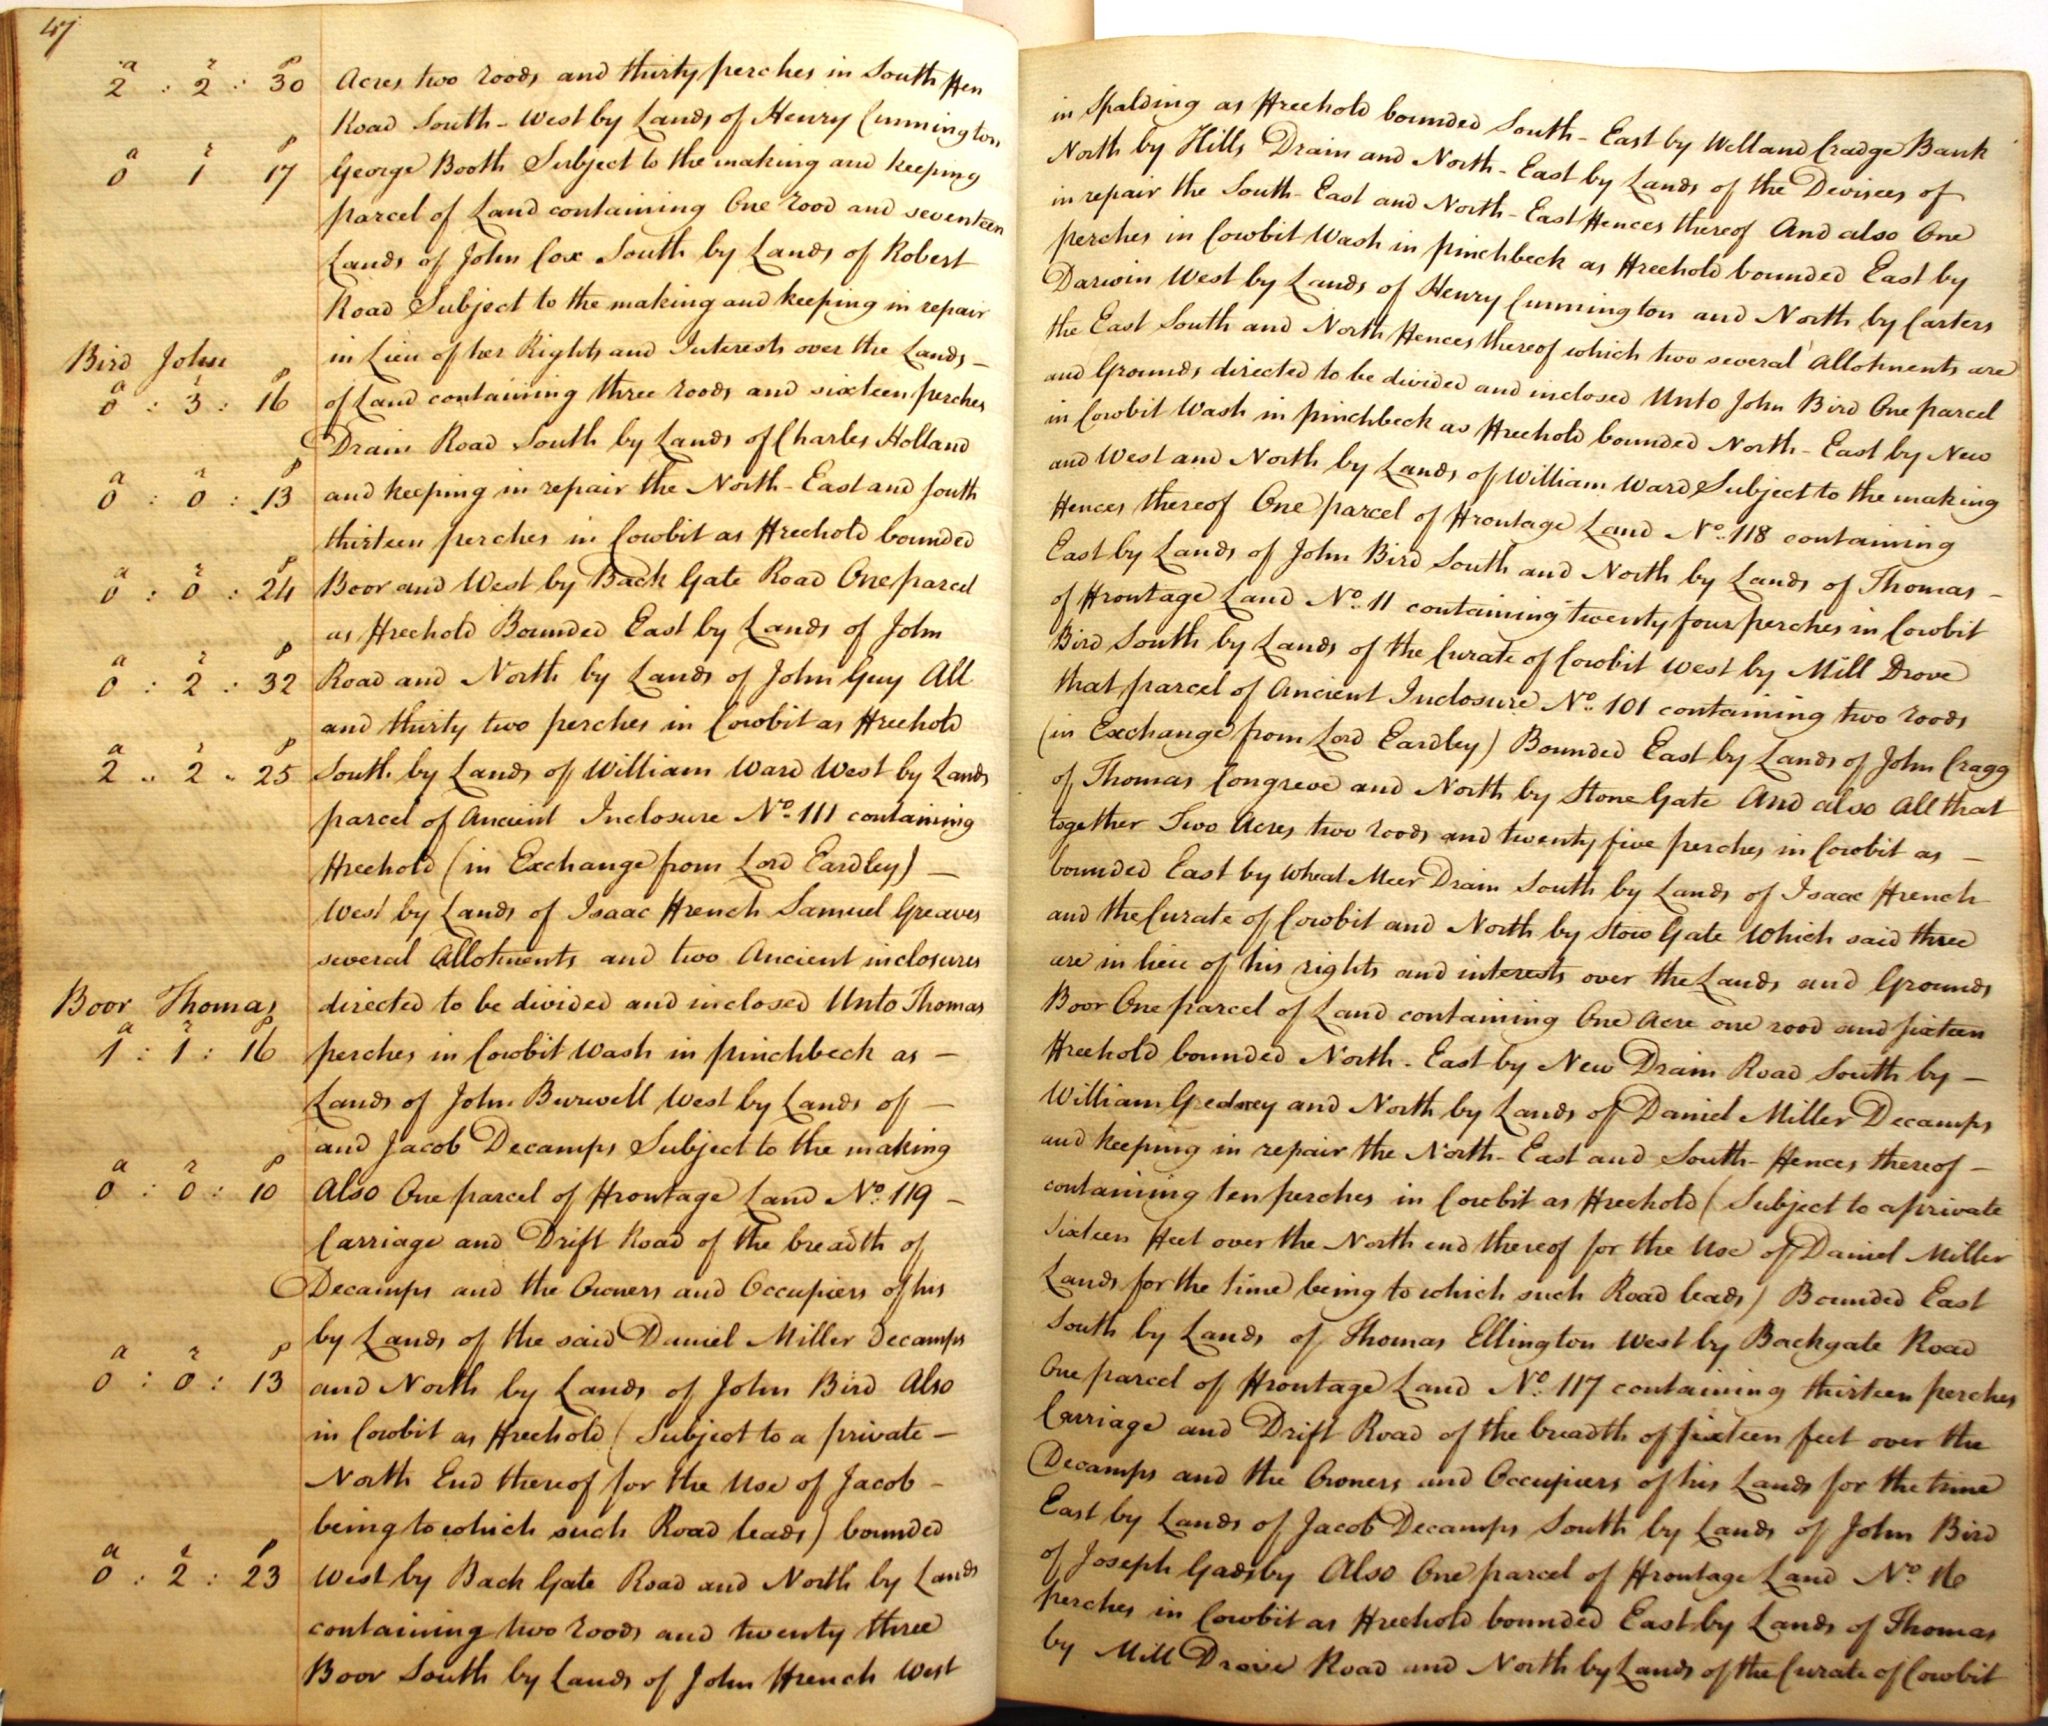 47
a r p
2 : 2 : 30 Acres two roods and thirty perches in South Fen in Spalding as Freehold bounded South-East by Welland Cradge Bank
Road South-West by Lands of Henry Cunnington North by Hills Drain and North-East by Lands of the Devisees of
a r p
0 1 17 George Booth Subject to the making and keeping in repair the South-East and North-East Fences thereof And also One
parcel of Land containing One rood and seventeen perches in Cowbit Wash in pinchbeck as Freehold bounded East by
Lands of John Cox South by Lands of Robert Darwin West by Lands of Henry Cunnington and North by Carters
Road Subject to the making and keeping in repair the East South and North Fences thereof which two several Allotments are
Bird John in Lieu of her Rights and Interests over the Lands – and Grounds directed to be divided and inclosed Unto John Bird One parcel
a r p
0 : 3 : 16 of Land containing three roods and sixteen perches in Cowbit Wash in pinchbeck as Freehold bounded North-East by New
Drain Road South by Lands of Charles Holland and West and North by Lands of William Ward Subject to the making
a r p
0 : 0 : 13 and keeping in repair the North-East and South Fences thereof One parcel of Frontage Land No. 118 containing
thirteen perches in Cowbit as Freehold bounded East by Lands of John Bird South and North by Lands of Thomas –
a r p
0 : 0 : 24 Boor and West by Back Gate Road One parcel of Frontage Land No. 11 containing twenty four perches in Cowbit
as Freehold Bounded East by Lands of John Bird South by Lands of the Curate of Cowbit West by Mill Drove
a r p
0 : 2 : 32 Road and North by Lands of John Guy All that parcel of Ancient Inclosure No. 101 containing two roods
and thirty two perches in Cowbit as Freehold (in Exchange from Lord Eardley) Bounded East by Lands of John Cragg
a r p
2 .. 2 .. 25 South by Lands of William Ward West by Lands of Thomas Congreve and North by Stone Gate And also All that
parcel of Ancient Inclosure No. 111 containing together Two Acres two roods and twenty five perches in Cowbit as –
Freehold (in Exchange from Lord Eardley) – bounded East by Wheat Meer Drain South by Lands of Isaac French
West by Lands of Isaac French Samuel Greaves and the Curate of Cowbit and North by Stow Gate Which said three
several Allotments and two Ancient inclosures are in lieu of his rights and interests over the Lands and Grounds
Boor Thomas directed to be divided and inclosed Unto Thomas Boor One parcel of Land containing One Acre one rood and sixteen
a r p
1 : 1 : 16 perches in Cowbit Wash in pinchbeck as – Freehold bounded North-East by New Drain Road South by –
Lands of John Burwell West by Lands of – William Gedney and North by Lands of Daniel Miller Decamps
and Jacob Decamps Subject to the making and keeping in repair the North-East and South-Fences thereof –
a r p
0 : 0 : 10 Also One parcel of Frontage Land No. 119 – containing ten perches in Cowbit as Freehold (Subject to a private
Carriage and Drift Road of the breadth of sixteen Feet over the North end thereof for the Use of Daniel Miller
Decamps and the Owners and Occupiers of his Lands for the time being to which such Road leads) Bounded East
by Lands of the said Daniel Miller Decamps South by Lands of Thomas Ellington West by Backgate Road
a r p
0 : 0 : 13 and North by Lands of John Bird Also One parcel of Frontage Land No. 117 containing thirteen perches
in Cowbit as Freehold (Subject to a private – Carriage and Drift Road of the breadth of sixteen feet over the
North End thereof for the Use of Jacob – Decamps and the Owners and Occupiers of his Lands for the time
being to which such Road leads) bounded East by Lands of Jacob Decamps South by Lands of John Bird
a r p
0 : 2 : 23 West by Back Gate Road and North by Lands of Joseph Gadsby Also One parcel of Frontage Land No. 16
containing two roods and twenty three perches in Cowbit as Freehold bounded East by Lands of Thomas
Boor South by Lands of John French West by Mill Drove Road and North by Lands of the Curate of Cowbit